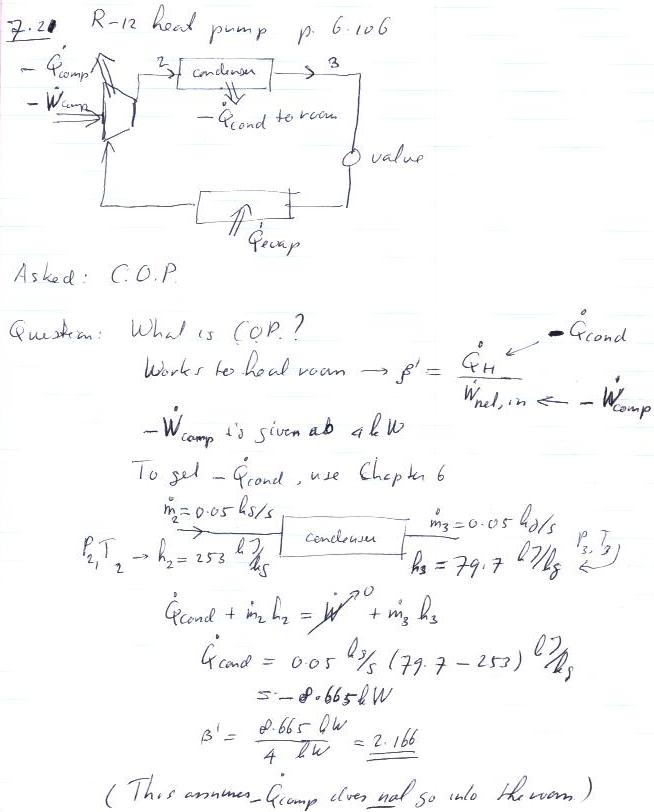 7.21 R-12 heat pump p. 6.106
- Q̇comp
2 condenser 3
- Ẇcomp
- Q̇cond to room
value
Q̇evap
Asked: C.O.P.
Question: What is COP.?
- Q̇cond
Works to heat room → β' = Q̇H / Ẇnet, in ← - Ẇcomp
- Ẇcomp is given as 4 kW
To get - Q̇cond, use Chapter 6
ṁ2 = 0.05 kg/s condenser ṁ3 = 0.05 kg/s
P2, T2 → h2 = 253 kJ/kg h3 = 79.7 kJ/kg P3, T3
Q̇cond + ṁ2 h2 = Ẇ 0 + ṁ3 h3
Q̇cond = 0.05 kg/s (79.7 - 253) kJ/kg
= - 8.665 kW
β' = 8.665 kW / 4 kW = 2.166
(This assumes - Q̇comp does not go into the room.)